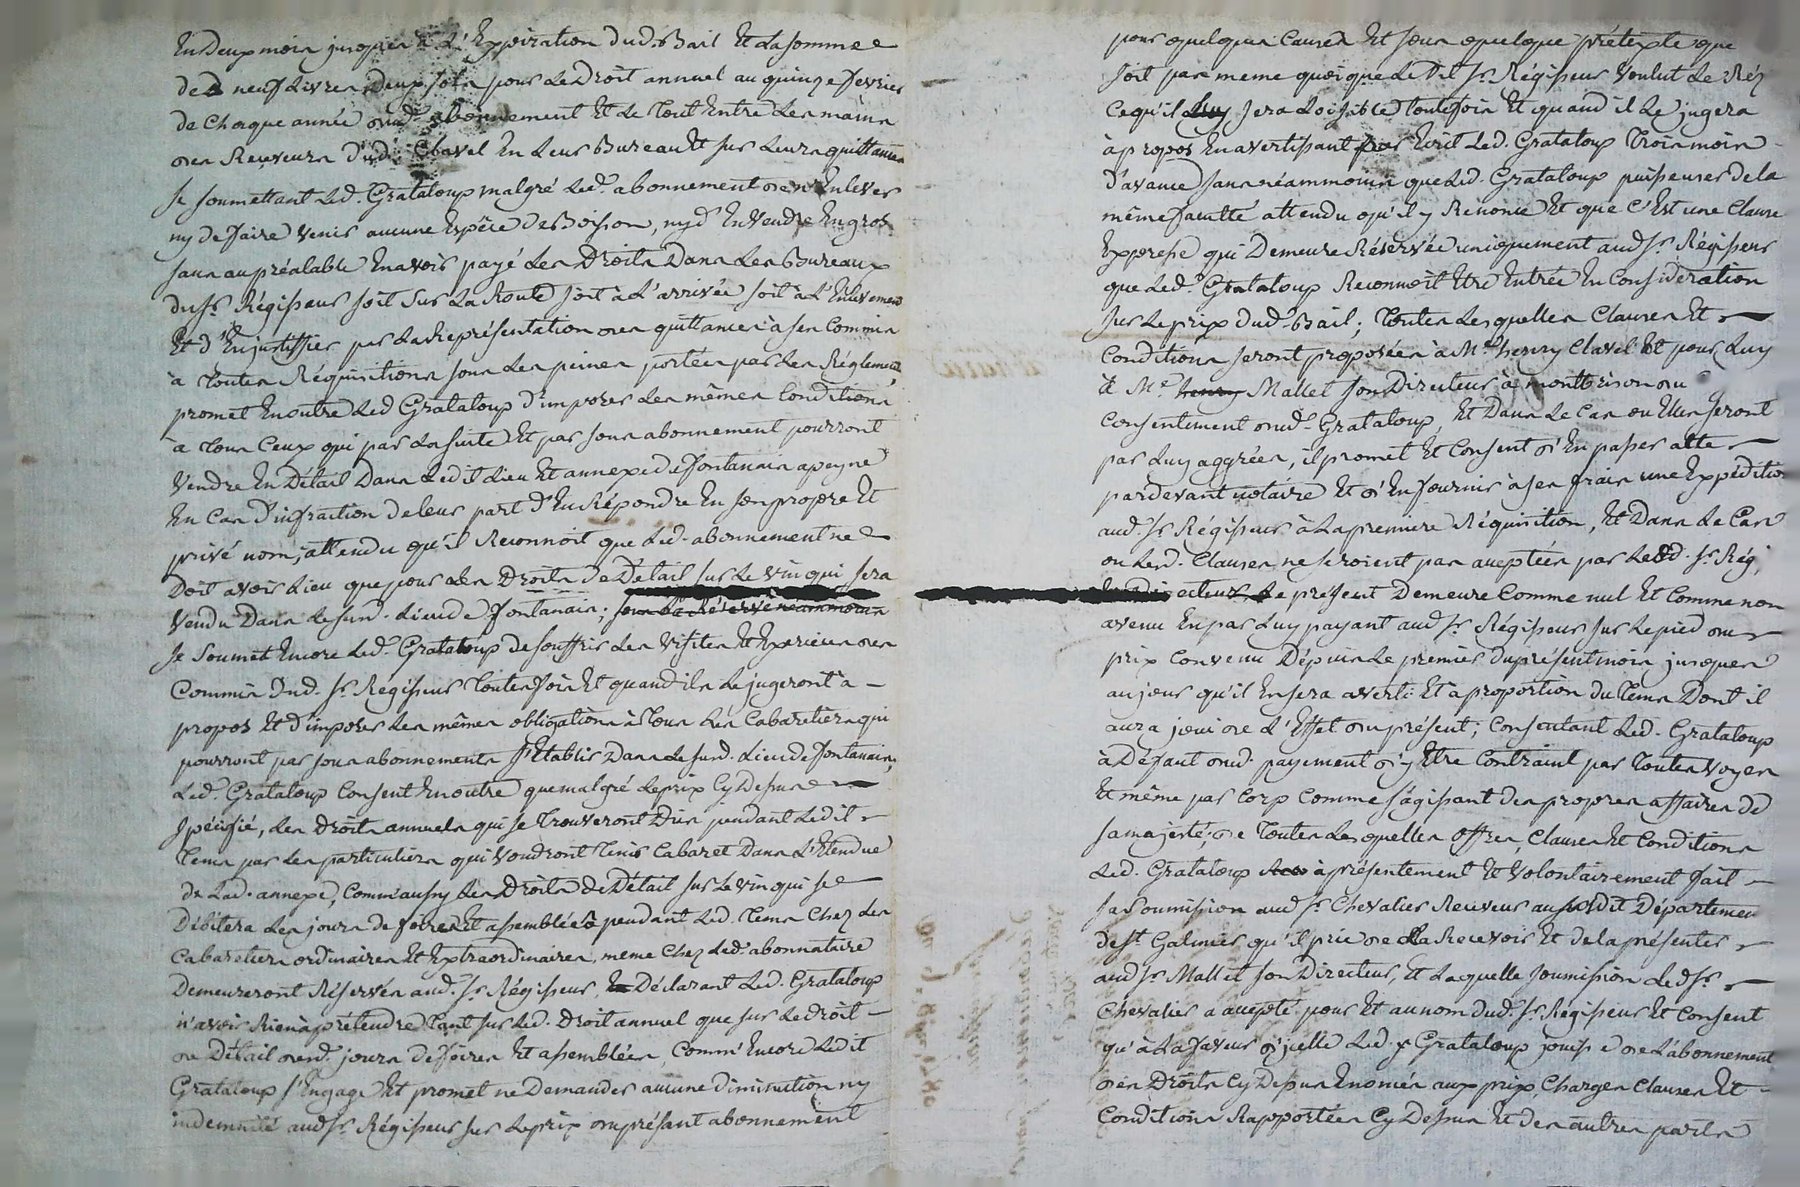 En Deux mois jusques à L'Expiration dud. Bail Et La somme
de neuf Livres Deux sols pour Le Droit annuel au quinze fevrier
de Chaque année dud. abonnement Et Le Tout Entre Les mains
des Receveurs dud. Clavel En Leur Bureau Et sur Leurs quittances
se soumettant Led. Grataloup malgré Led. abonnement de n'Enlever
ny de faire venir aucune Espéce de Boisson, ny d'En vendre En gros
sans au préalable En avoir payé Les Droits Dans Les Bureaux
du Sr. Régisseur soit sur La Route soit à L'arrivée soit à L'Enlevement
Et d'En justiffier par La Représentation des quittances à ses Commis
à Toutes Réquisitions sous Les peines portées par Les Réglements,
promet En outre Led. Grataloup d'imposer Les mêmes Conditions
à Tous Ceux qui par La suite Et par sous abonnement pourront
Vendre En Détail Dans Ledit Lieu Et annexe de fontanais a peyne
En Cas D'infraction de leur part D'En Répondre En son propre Et
privé nom, attendu qu'il Reconnoit que Led. abonnement ne
Doit avoir Lieu que pour Les Droits de Détail sur Le Vin qui sera
Vendu Dans Le susd. Lieu de fontanais; sous La Réserve néammoins
Se Soumet Encore Led. Grataloup de souffrir Les Visites Et Exercices des
Commis Dud. Sr. Régisseur Toutesfois Et quand ils Le jugeront à
propos Et d'imposer Les mêmes obligations à Tous Les Cabaretiers qui
pourront par sous abonnements s'Etablir Dans Le susd. Lieu de fontanais,
Led. Grataloup Consent En outre que malgré Le prix Cy Dessus
Spécifié, Les Droits annuels qui se Trouveront Dûs pendant Ledit
Tems par Les particuliers qui Voudront Tenir Cabaret Dans L'Etendue
de Lad. annexe, Comm'aussy Les Droits de Détail sur Le Vin qui se
Débitera Les jours de foires Et assemblées pendant Led. Tems Chez Les
Cabaretiers ordinaires Et Extraordinaires, meme Chez Led. abonnataire
Demeureront Réservés aud. Sr. Régisseur, Déclarant Led. Grataloup
n'avoir Rien à prétendre Tant sur Led. Droit annuel que sur Le Droit
de Détail desd. jours de foires Et assemblées, Comm'Encore Ledit
Grataloup s'Engage Et promet ne Demander aucune diminution ny
indemnité aud. Sr. Régisseur sur Le prix du présent abonnement
pour quelques Causes Et sous quelque prétexte que
soit pas meme quoique Le Dit Sr. Régisseur Voulut Le
Ce qu'il Luy sera Loisible Toutesfois Et quand il Le jugera
à propos En avertissant par Ecrit Led. Grataloup Trois mois
d'avance sans néammoins que Led. Grataloup puisse user de la
même faculté attendu qu'il y Renonce Et que C'Est une Clause
Expresse qui Demeure Réservée uniquement aud. Sr. Régisseur
que Led. Grataloup Reconnoît Etre Entrée En Considération
sur Le prix Dud. Bail; Toutes Lesquelles Clauses Et
Conditions seront proposées à Me. henry Clavel Et pour Luy
à Me. henry Mallet son Directeur à montbrison du
Consentement dud. Grataloup, Et Dans Le Cas ou Elles seront
par Luy aggréés, il promet Et Consent d'En passer acte
pardevant notaire Et d'En fournir à ses frais une Expédition
aud. Sr. Régisseur à La premiere Réquisition, Et Dans Le Cas
ou Lesd. Clauses ne seroient pas acceptées par Led. Sr. Rég.
Directeur Le présent Demeure Comme nul Et Comme non
avenu En par Luy payant aud. Sr. Régisseur sur Le pied du
prix Convenu Dépuis Le premier du présent mois jusques
au jour qu'il En sera averti Et a proportion du Tems Dont il
aura joui de L'Effet du présent; Consentant Led. Grataloup
à Défaut dud. payement d'y Etre Contraint par Toutes Voyes
Et même par Corp Comme s'agissant des propres affaires de
sa majesté, de Toutes Lesquelles offres, Clauses Et Conditions
Led. Grataloup à présentement Et Volontairement fait
sa Soumission aud. Sr. Chevalier Receveur au susdit Département
de St. Galmier qu'il prie de La Recevoir Et de la présenter
aud. Sr. Mallet son Directeur, Et Laquelle soumission Led. Sr.
Chevalier a accepté pour Et au nom Dud. Sr. Régisseur Et Consent
qu'à La faveur d'icelle Led. Sr. Grataloup jouisse de L'abonnement
des Droits Cy Dessus Enoncés aux prix, Charges Clauses Et
Conditions Rapportées Cy Dessus Et des autres parts